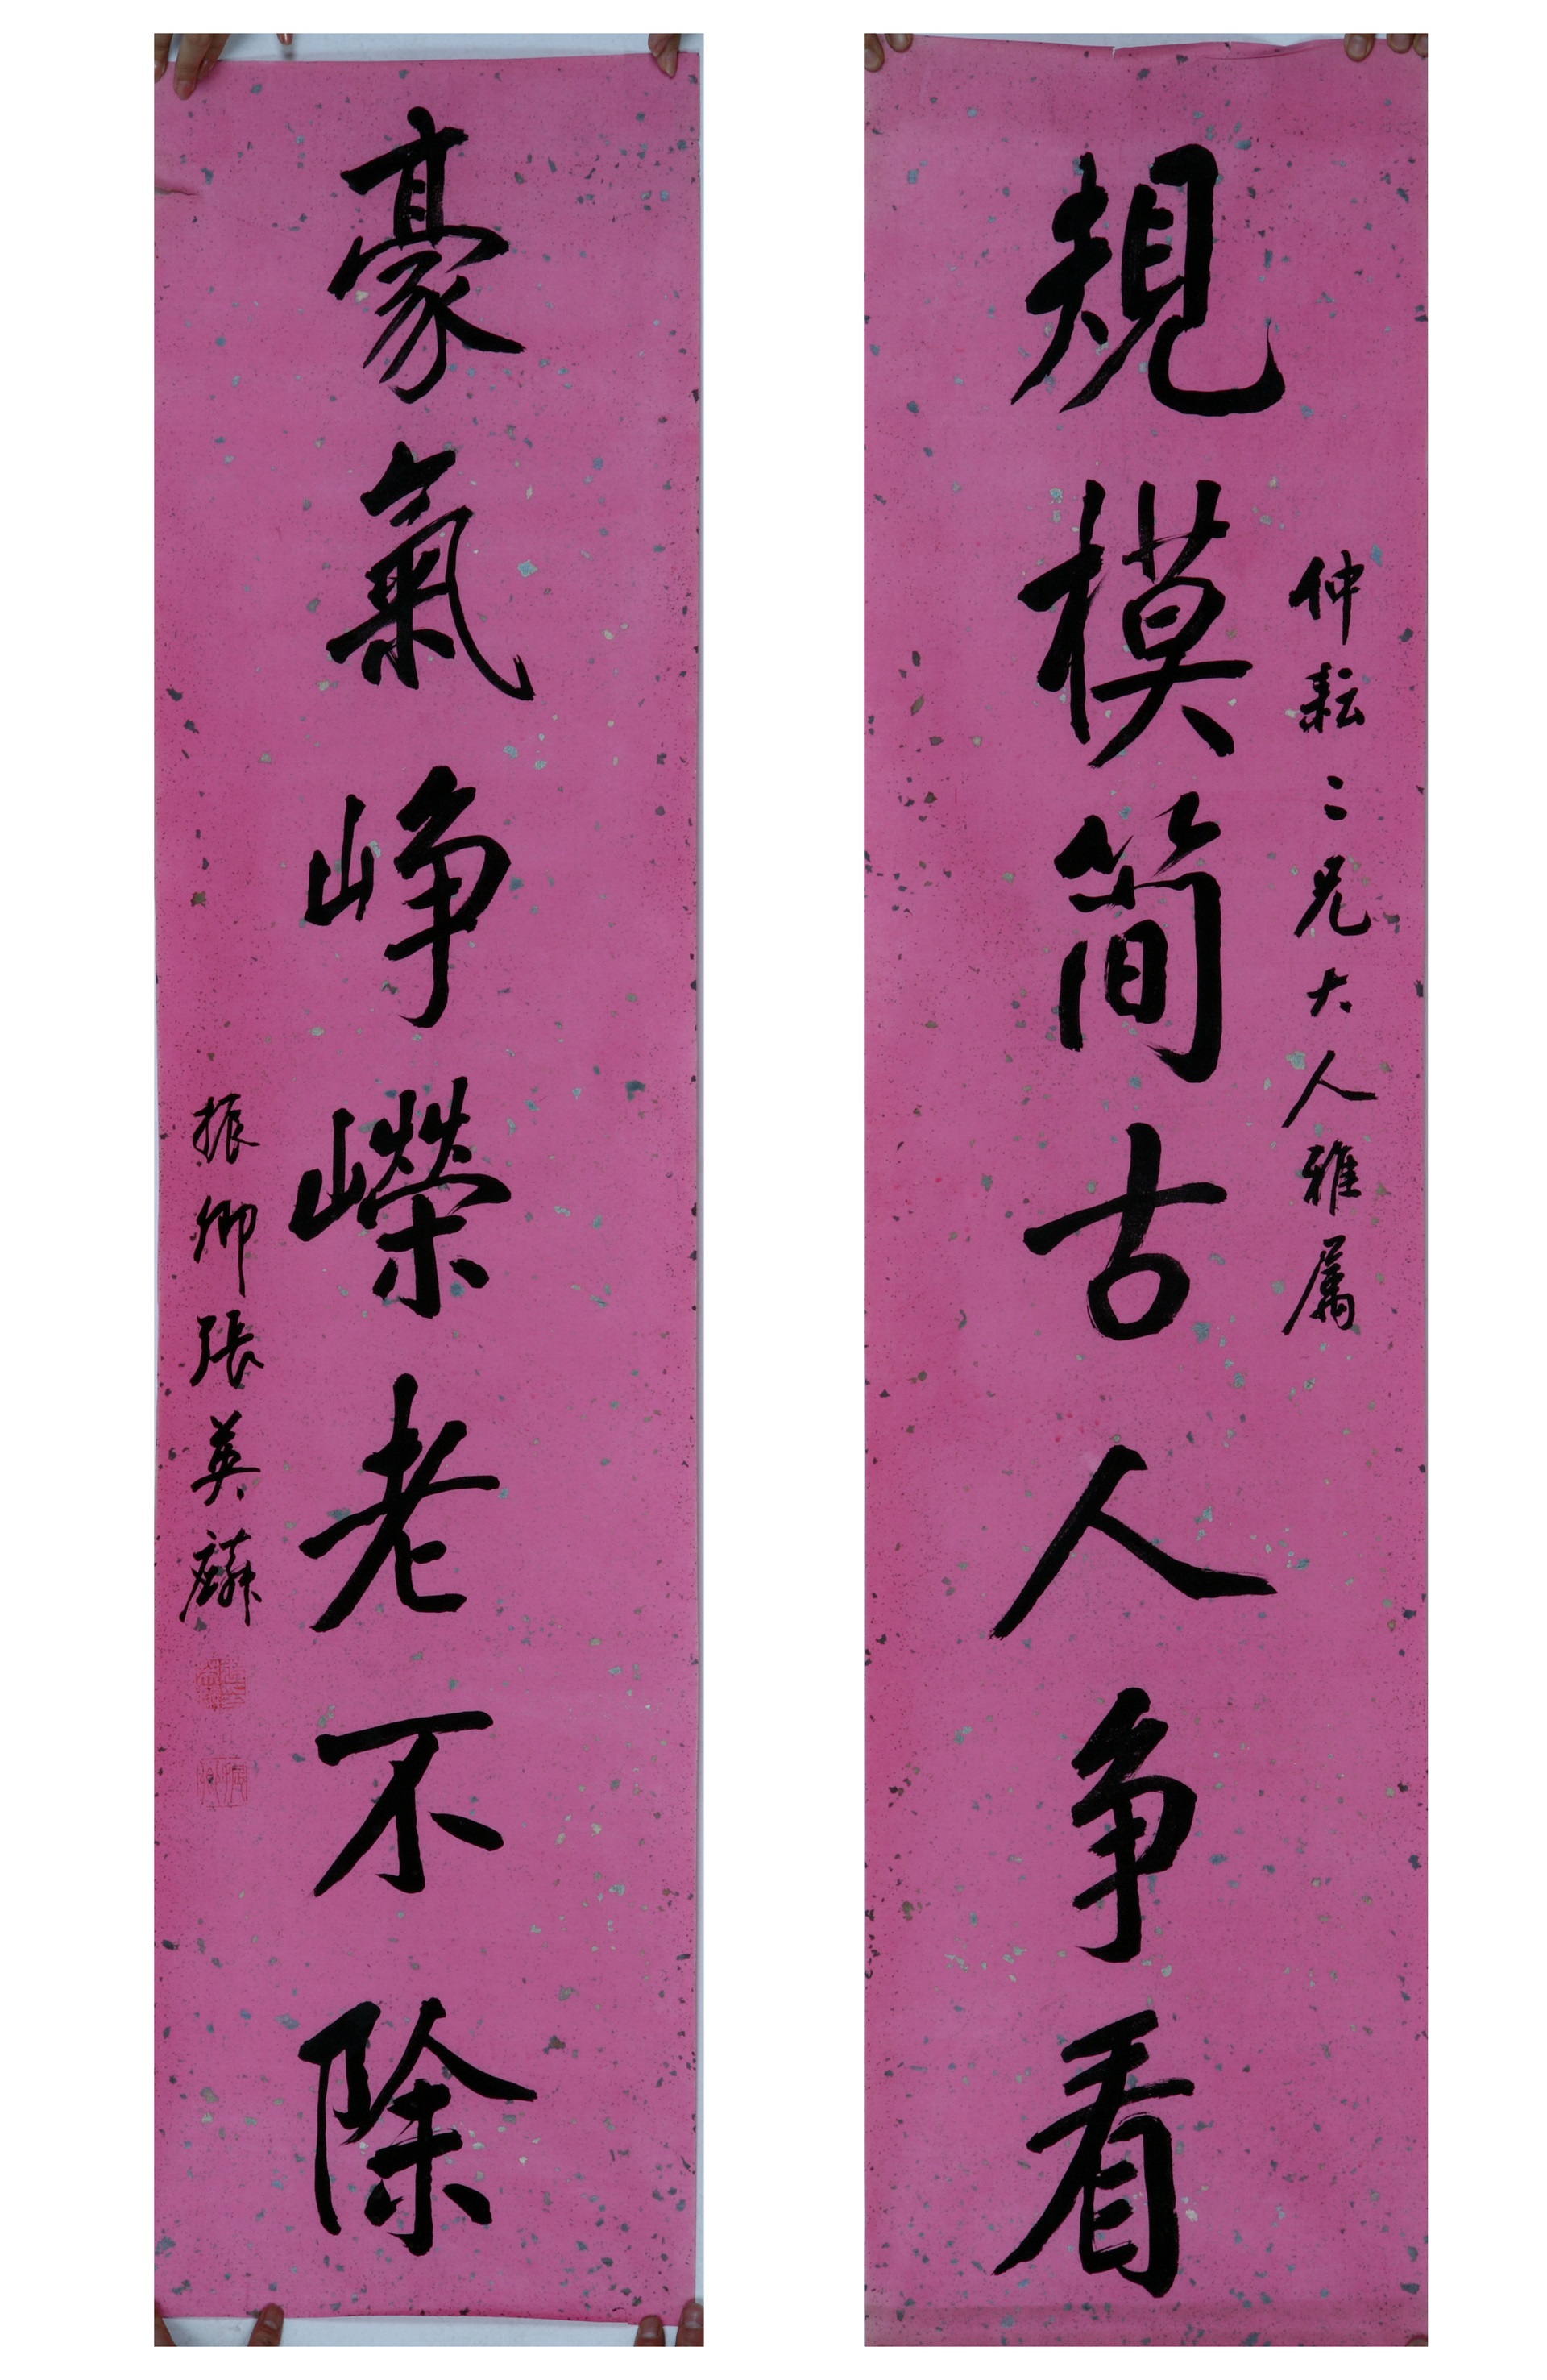 仲耘二兄大人雅属
規模簡古人争看
豪氣峥嶸老不除
振卿張英麟